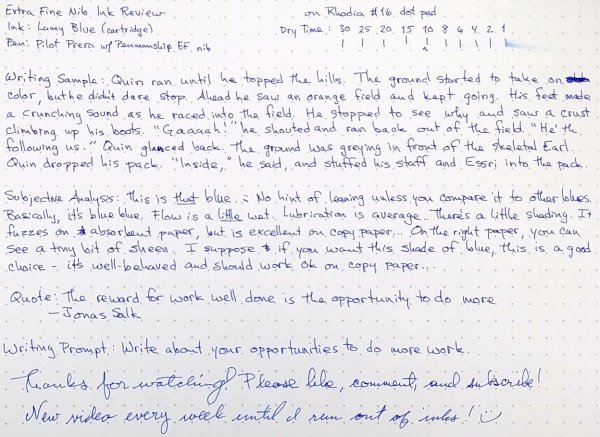 Extra Fine Nib Ink Review
on Rhodia #16 dot pad
Ink: Lamy Blue (cartridge)
Dry Time: 30 25 20 15 10 8 6 4 2 1
Pen: Pilot Prera w/ Penmanship EF nib
Writing Sample: Quin ran until he topped the hills. The ground started to take on
color, but he didn't dare stop. Ahead he saw an orange field and kept going. His feet made
a crunching sound as he raced into the field. He stopped to see why and saw a crust
climbing up his boots. "Gaaaah!" he shouted and ran back out of the field. "He'th
following us." Quin glanced back. The ground was greying in front of the skeletal Earl.
Quin dropped his pack. "Inside," he said, and stuffed his staff and Essri into the pack.
Subjective Analysis: This is that blue. No hint of leaning unless you compare it to other blues.
Basically, it's blue blue. Flow is a little wet. Lubrication is average. There's a little shading. It
fuzzes on absorbent paper, but is excellent on copy paper... On the right paper, you can
see a tiny bit of sheen. I suppose if you want this shade of blue, this is a good
choice - it's well-behaved and should work ok on copy paper...
Quote: The reward for work well done is the opportunity to do more
- Jonas Salk
Writing Prompt: Write about your opportunities to do more work.
Thanks for watching! Please like, comment, and subscribe!
New video every week until I run out of inks!